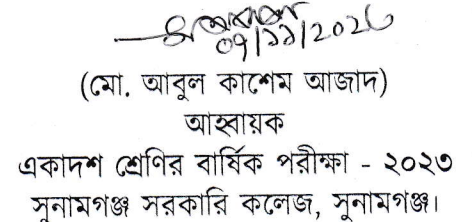 ০৭/১১/২০২৩
(মো. আবুল কাশেম আজাদ)
আহ্বায়ক
একাদশ শ্রেণির বার্ষিক পরীক্ষা - ২০২৩
সুনামগঞ্জ সরকারি কলেজ, সুনামগঞ্জ।